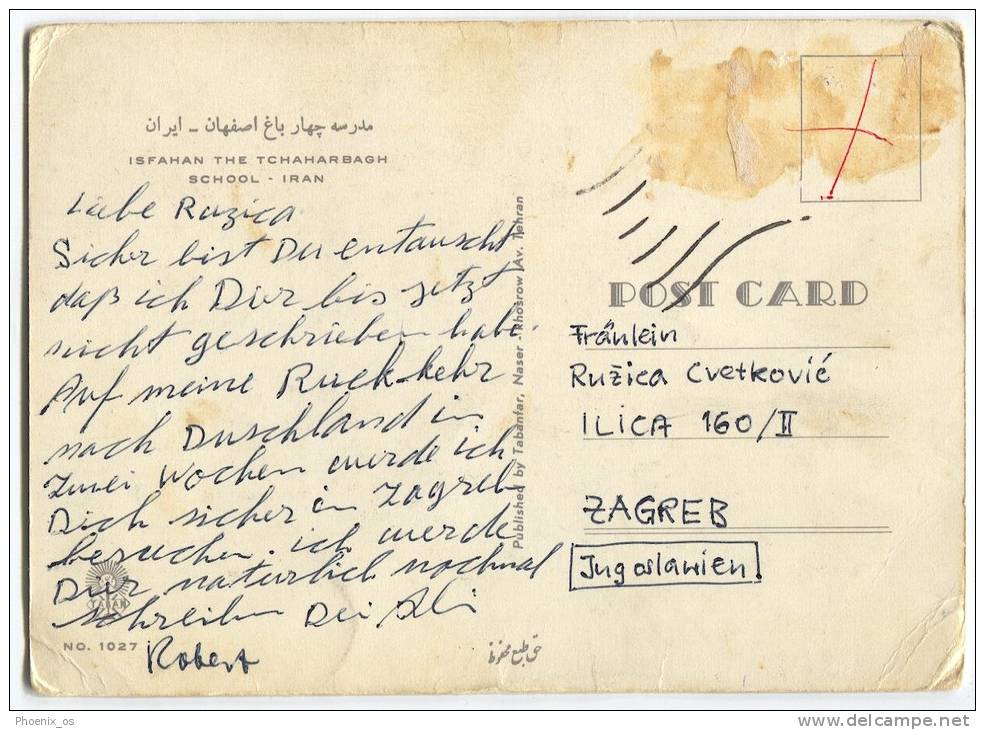 مدرسه چهار باغ اصفهان - ایران
ISFAHAN THE TCHAHARBAGH
SCHOOL - IRAN
Liebe Ruzica
Sicher bist Du entauscht
daß ich Dir bis jetzt
nicht geschrieben habe.
Auf meine Ruck-kehr
nach Duschland in
zwei Wochen werde ich
Dich sicher in Zagreb
besuchen. ich werde
Dir naturlich nochmal
schreiben Dei Ali
Robert
TABAN
NO. 1027
حق طبع محفوظ
Published by Tabanfar, Naser - Khosrow Av. Tehran
POST CARD
Fräulein
Ružica Cvetković
ILICA 160/II
ZAGREB
Jugoslawien!
Phoenix_os
delcampe.net